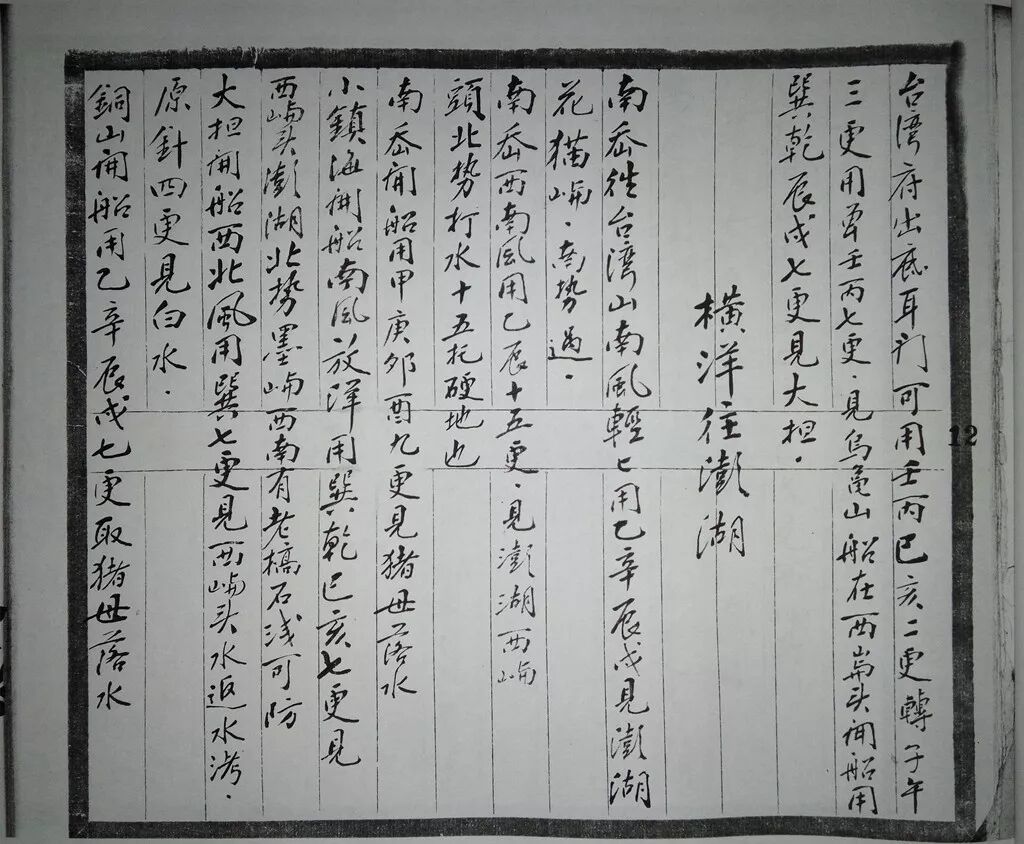 台湾府出鹿耳门可用壬丙巳亥二更轉子午
三更用单壬丙七更·見烏龜山船在西嵵头開船用
巽乾辰戌七更見大担·
横洋往澎湖
南岙往台湾山南風輕七用乙辛辰戌見澎湖
花猫嶼·南势過·
南岙西南風用乙辰十五更·見澎湖西嶼
頭北势打水十五托硬地也
南岙開船用甲庚夘酉九更見猪母落水
小鎮海開船南風放洋用巽乾巳亥七更見
西嶼头澎湖北势墨嶼西南有老槁石浅可防
大担開船西北風用巽七更見西嶼头水返水涝·
原針四更見白水·
銅山開船用乙辛辰戌七更取猪母落水
12